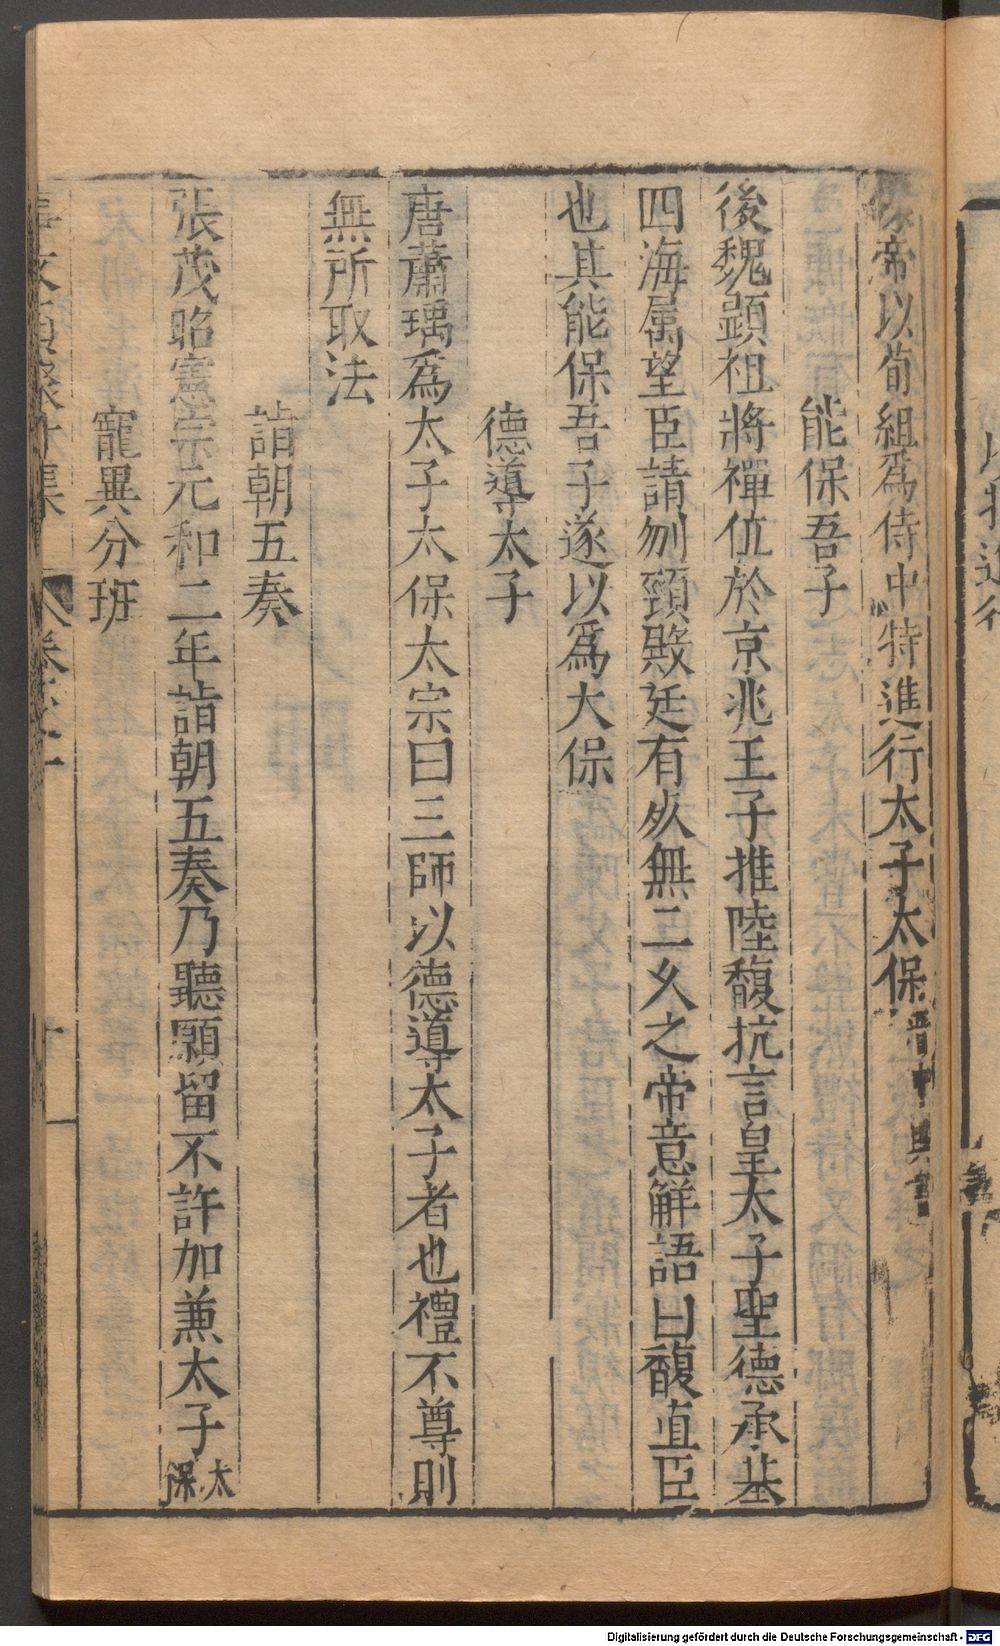 帝以荀組爲侍中特進行太子太保晋中興書
能保吾子
後魏顕祖將禪位於京兆王子推陸馥抗言皇太子聖德承基
四海属望臣請刎頸殿廷有死無二久之帝意解語曰馥直臣
也其能保吾子遂以爲大保
德導太子
唐蕭瑀爲太子太保太宗曰三師以德導太子者也禮不尊則
無所取法
詣朝五奏
張茂昭憲宗元和二年詣朝五奏乃聽願留不許加兼太子太保
寵異分班
十
Digitalisierung gefördert durch die Deutsche Forschungsgemeinschaft - DFG